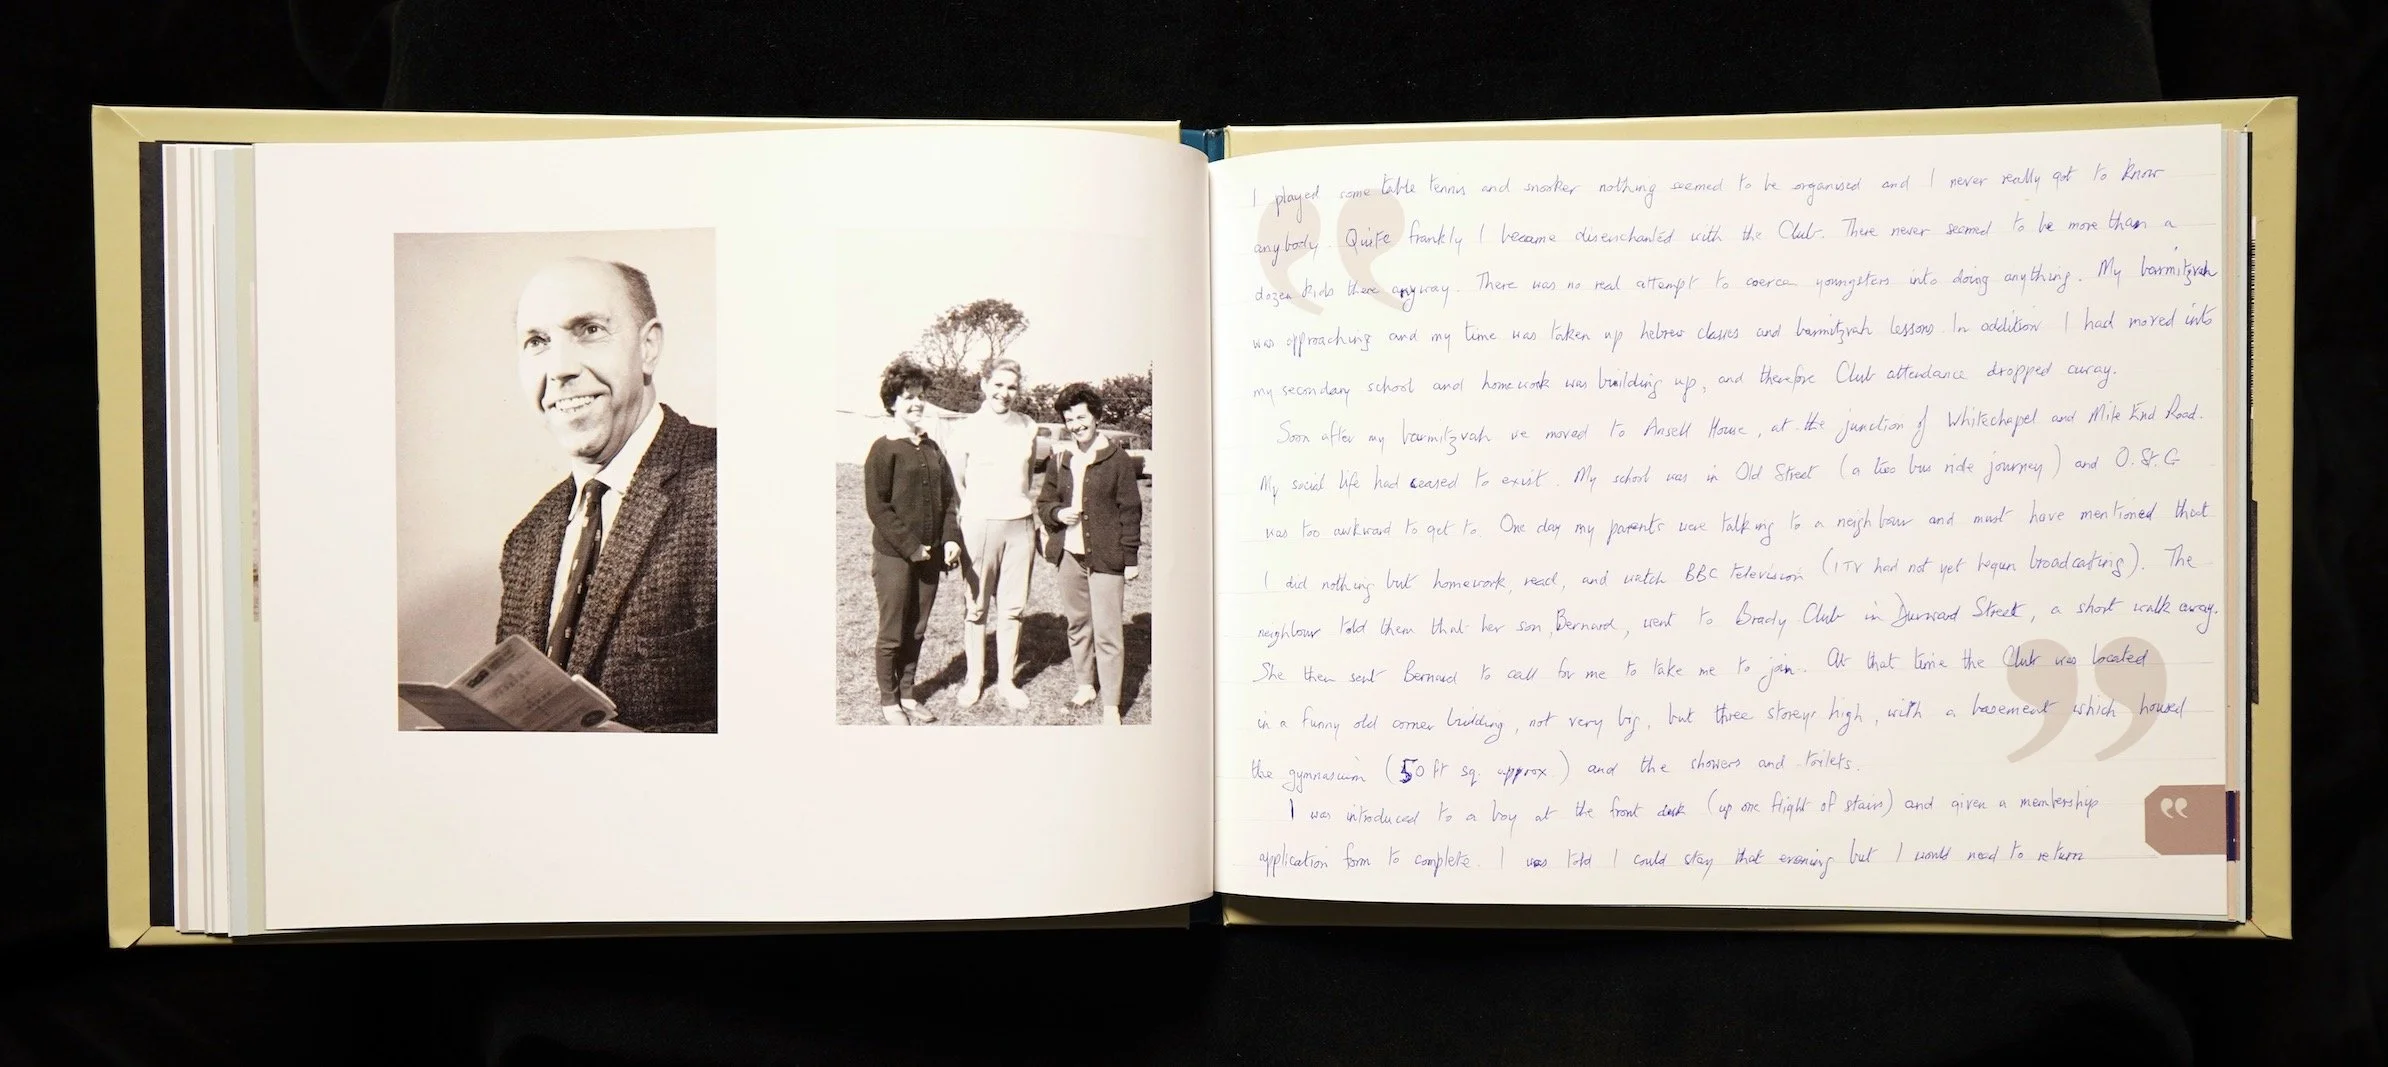 I played some table tennis and snooker nothing seemed to be organised and I never really got to know
anybody. Quite frankly I became disenchanted with the Club. There never seemed to be more than a
dozen kids there anyway. There was no real attempt to coerce youngsters into doing anything. My barmitzvah
was approaching and my time was taken up hebrew classes and barmitzvah lessons. In addition I had moved into
my secondary school and homework was building up, and therefore Club attendance dropped away.
Soon after my barmitzvah we moved to Ansell House, at the junction of Whitechapel and Mile End Road.
My social life had ceased to exist. My school was in Old Street (a two bus ride journey) and O.St.G
was too awkward to get to. One day my parents were talking to a neighbour and must have mentioned that
I did nothing but homework, read, and watch BBC television (ITV had not yet begun broadcasting). The
neighbour told them that her son, Bernard, went to Brady Club in Durward Street, a short walk away.
She then sent Bernard to call for me to take me to join. At that time the Club was located
in a funny old corner building, not very big, but three storeys high, with a basement which housed
the gymnasium (50 ft sq. approx.) and the showers and toilets.
I was introduced to a boy at the front desk (up one flight of stairs) and given a membership
application form to complete. I was told I could stay that evening but I would need to return